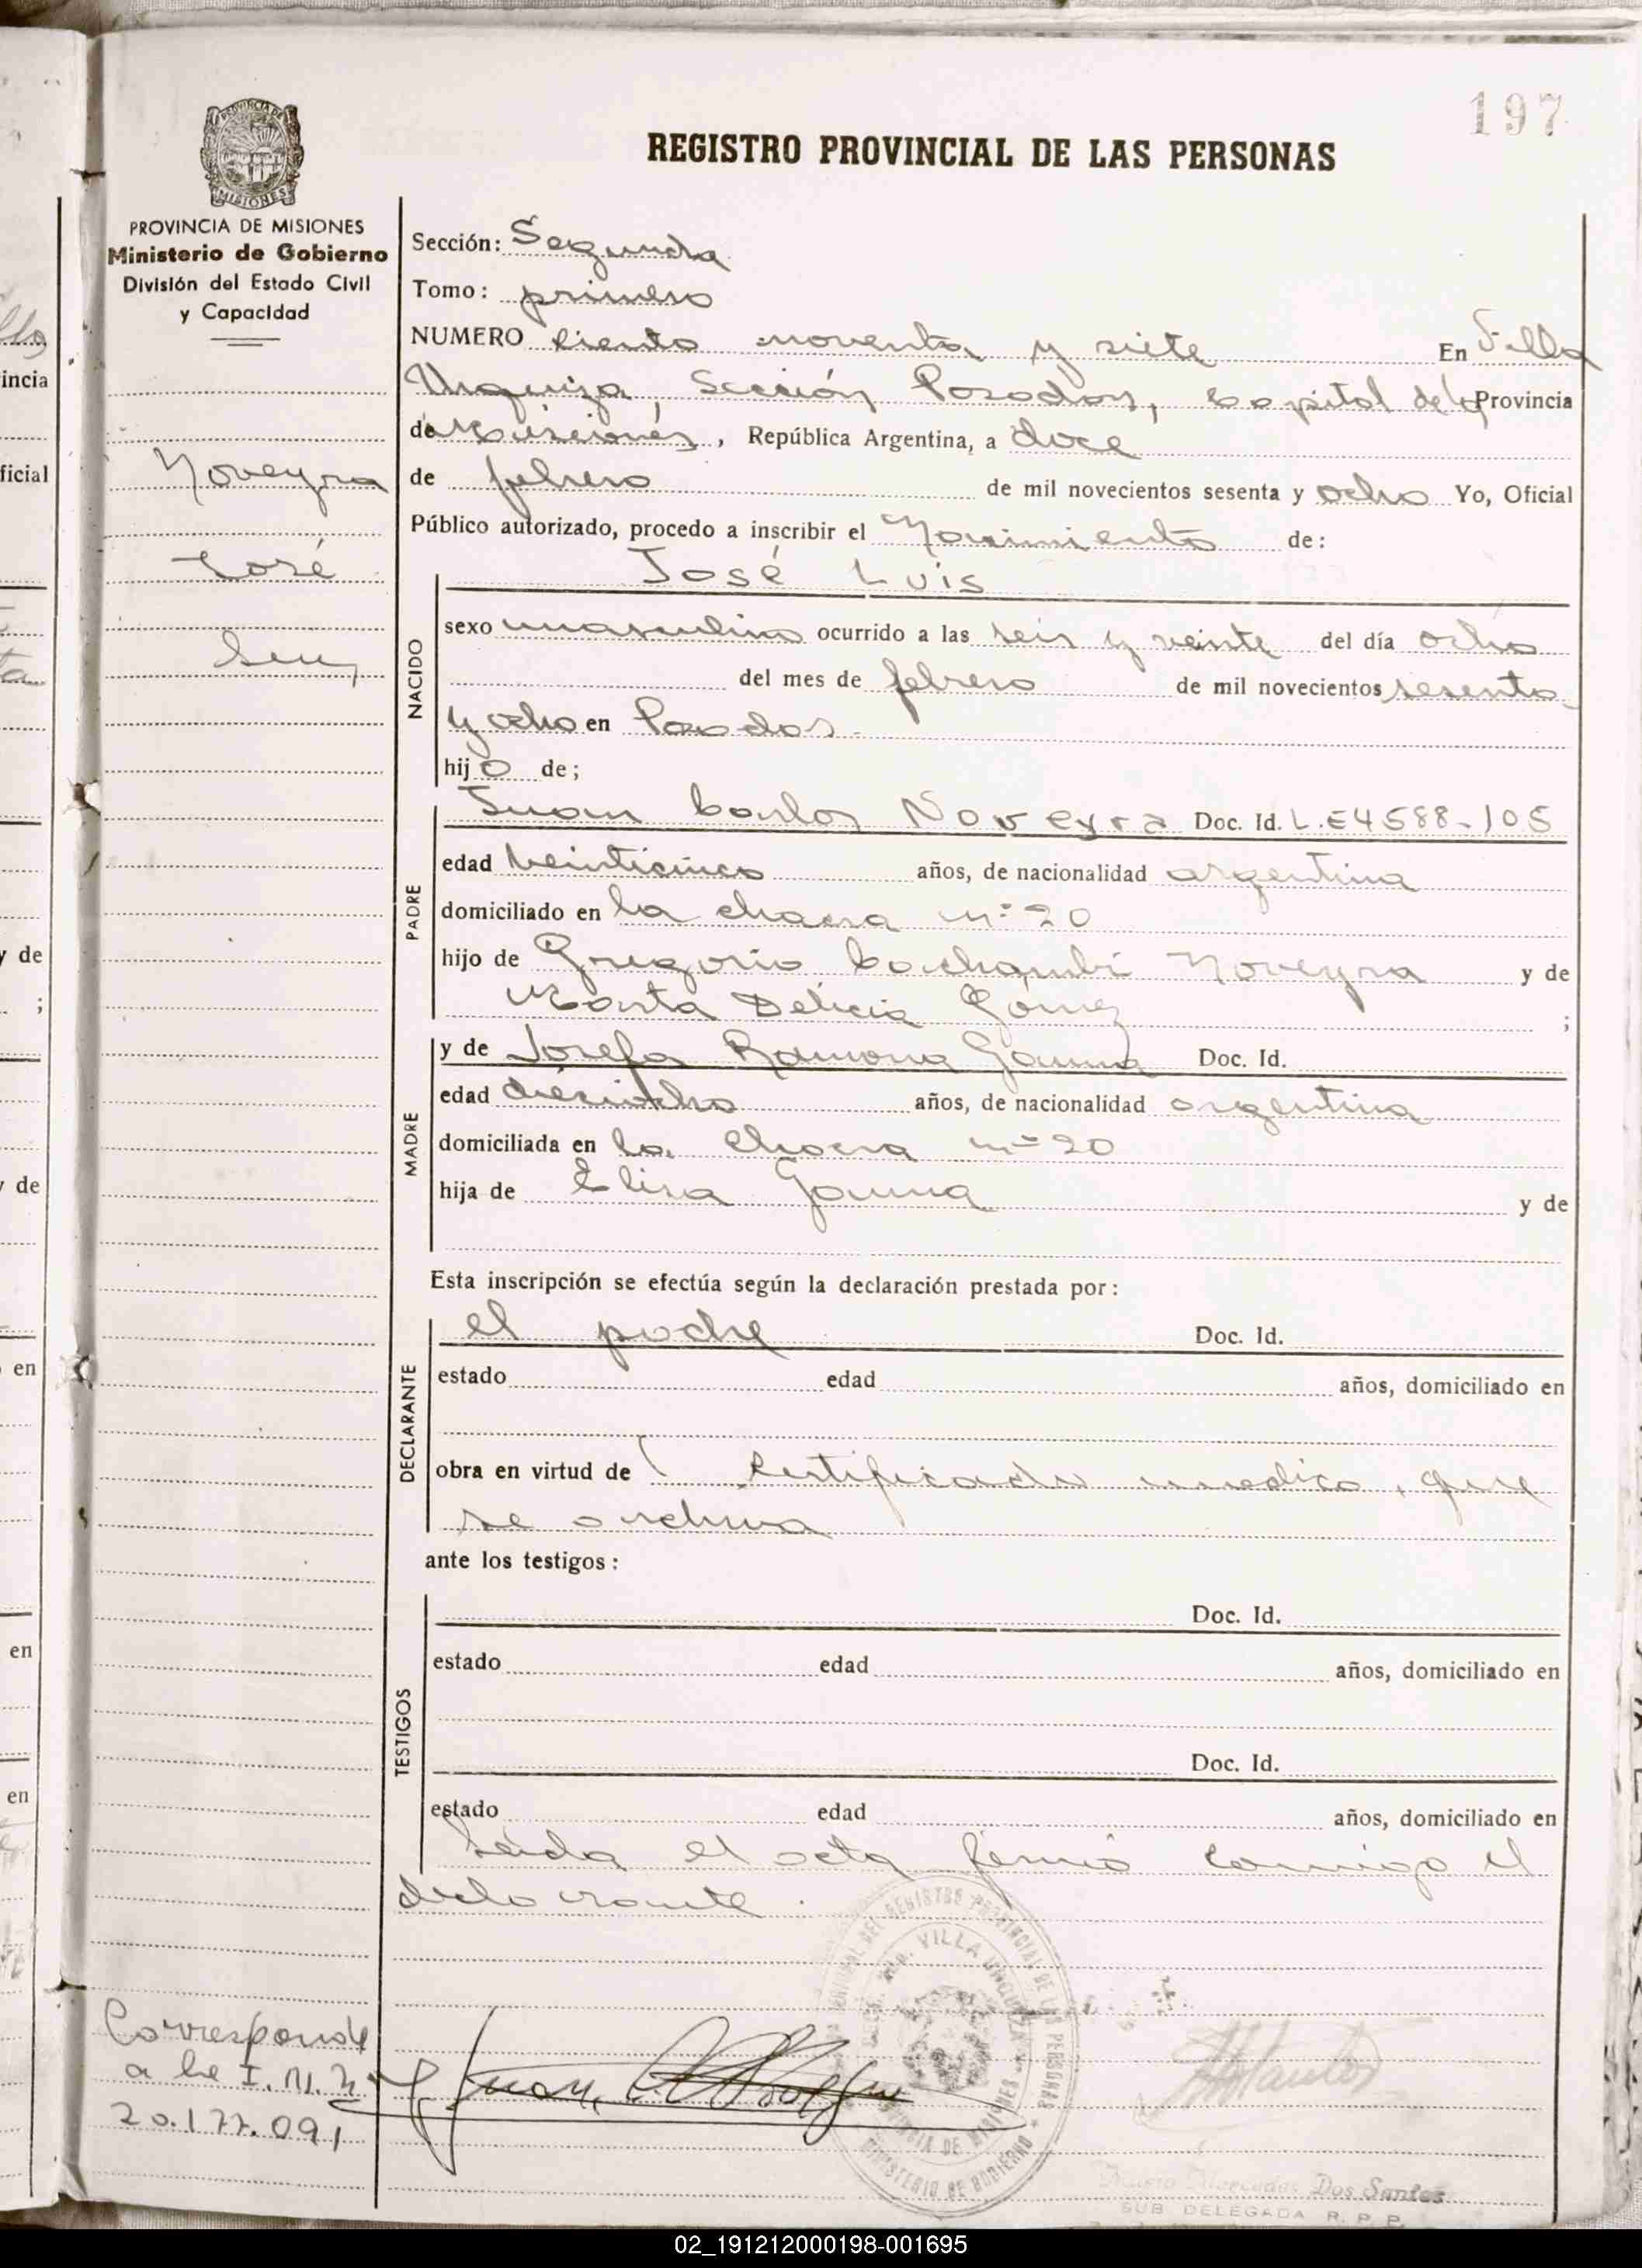 197
REGISTRO PROVINCIAL DE LAS PERSONAS
PROVINCIA DE MISIONES
MISIONES
PROVINCIA DE MISIONES
Ministerio de Gobierno
División del Estado Civil
y Capacidad
Noveyra
José
Luis
Sección: Segunda
Tomo: primero
NUMERO ciento noventa y siete En Villa
Urquiza, Sección Posadas, Capital de la Provincia
de Misiones, República Argentina, a doce
de febrero de mil novecientos sesenta y ocho Yo, Oficial
Público autorizado, procedo a inscribir el Nacimiento de:
José Luis
NACIDO
sexo masculino ocurrido a las seis y veinte del día ocho
del mes de febrero de mil novecientos sesenta
y ocho en Posadas.
hijo de;
PADRE
Juan Carlos Noveyra Doc. Id. L.E 4588-105
edad veinticinco años, de nacionalidad argentina
domiciliado en la chacra nº 20
hijo de Gregorio Noveyra y de
Marta Delicia Gómez ;
MADRE
y de Josefa Ramona Doc. Id.
edad dieciocho años, de nacionalidad argentina
domiciliada en la chacra nº 20
hija de Elisa y de
Esta inscripción se efectúa según la declaración prestada por:
DECLARANTE
el padre Doc. Id.
estado edad años, domiciliado en
obra en virtud de certificado medico, que
se archiva
ante los testigos:
TESTIGOS
Doc. Id.
estado edad años, domiciliado en
Doc. Id.
estado edad años, domiciliado en
Leida el acta firmó conmigo el
declarante.
Corresponde
a la I.M.N
20.177.091
DEL REGISTRO PROVINCIAL DE LAS PERSONAS
VILLA URQUIZA
PROVINCIA DE MISIONES
MINISTERIO DE GOBIERNO
Juan
Mercedes Dos Santos
SUB DELEGADA R. P. P.
incia
ficial
y de
;
y de
en
en
en
02_191212000198-001695